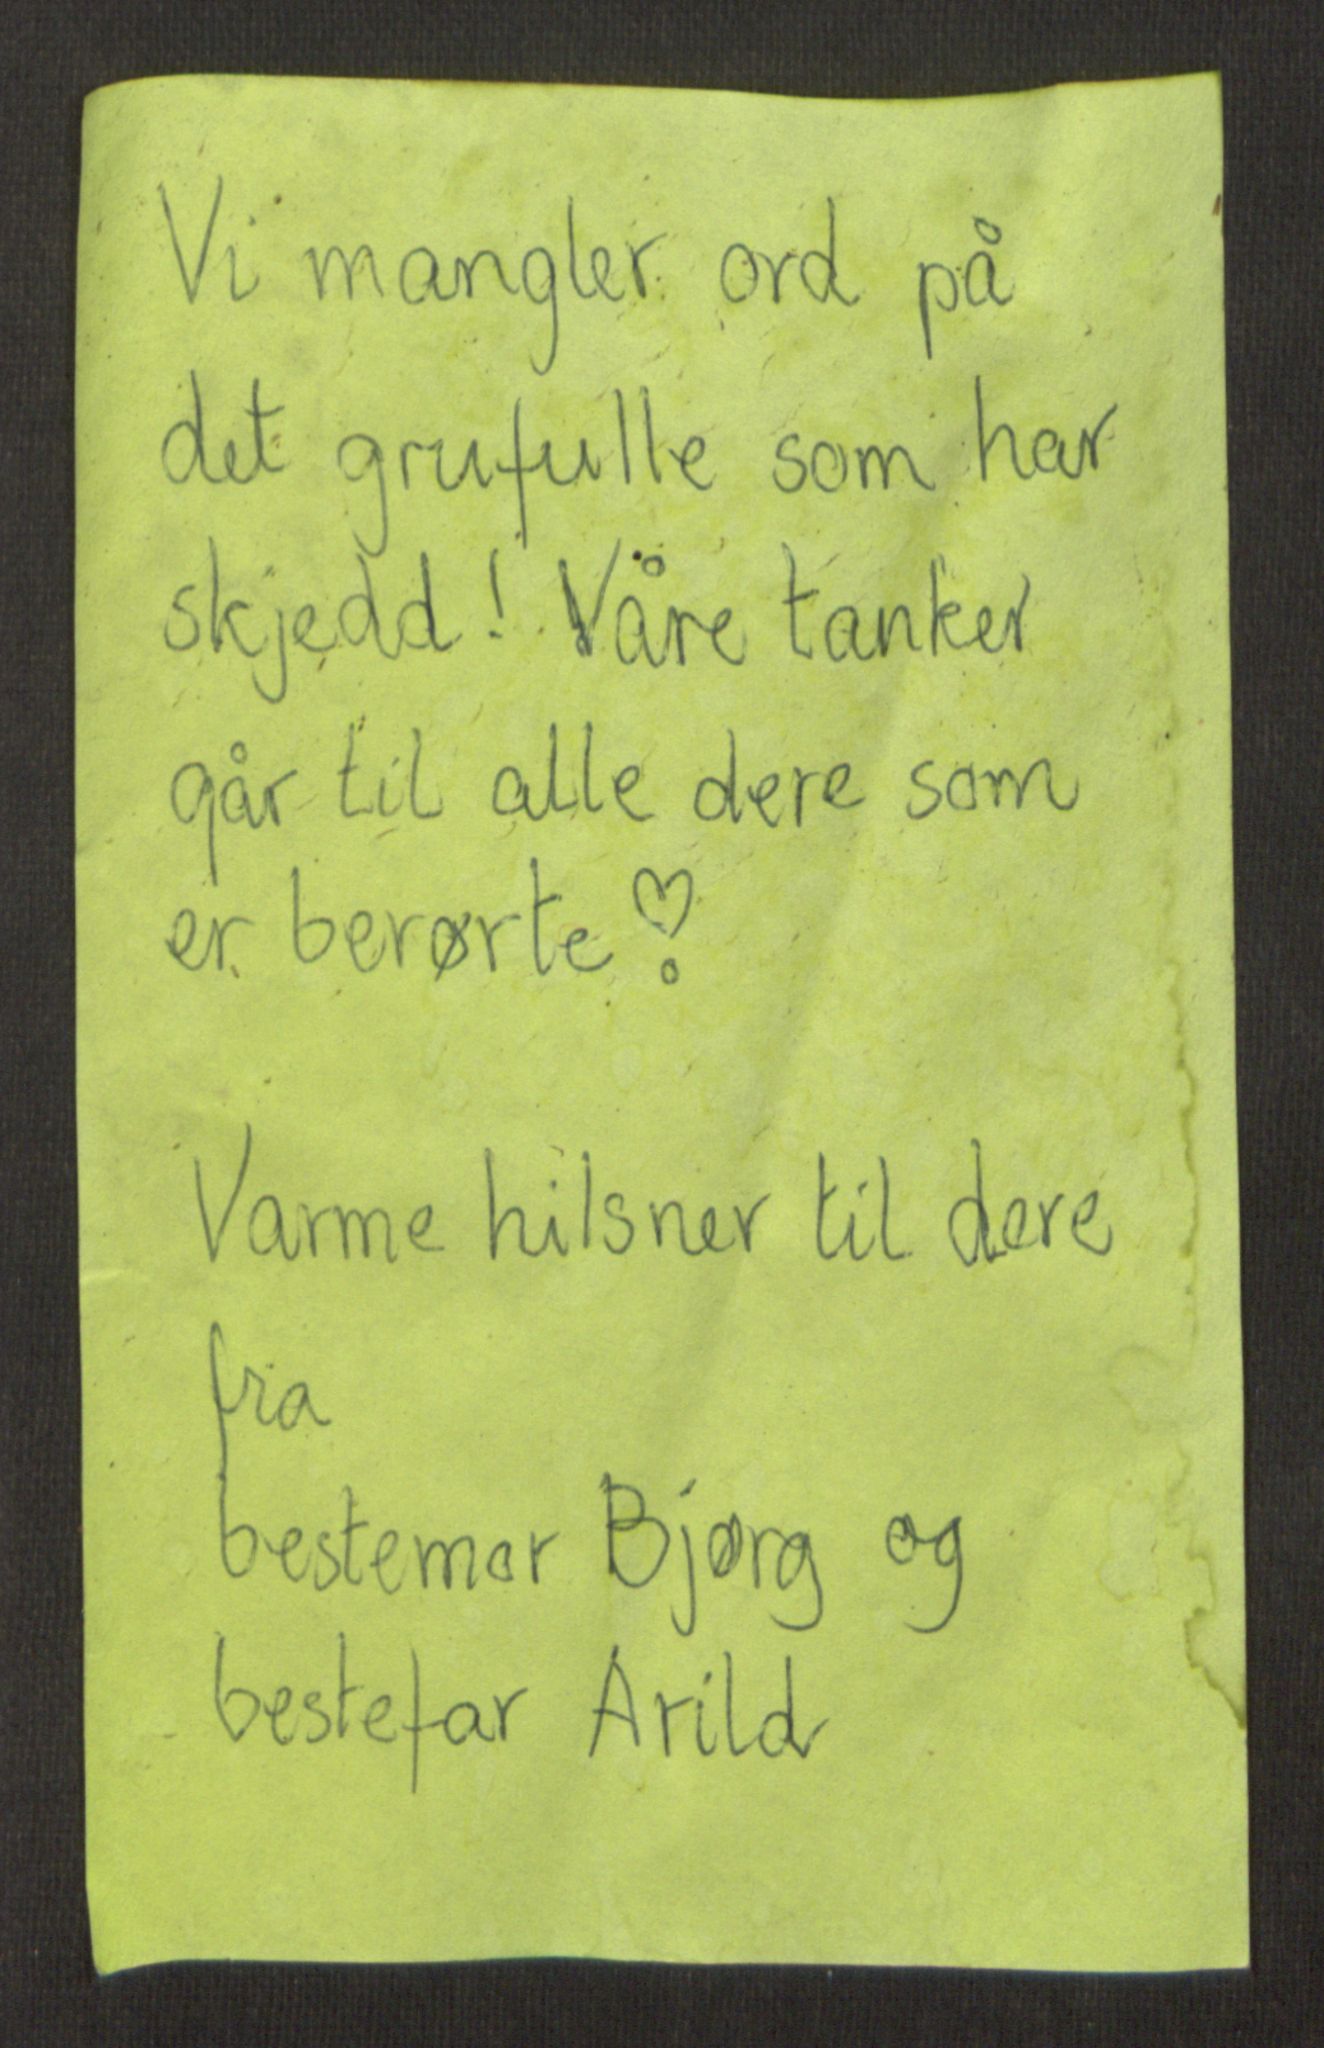 Vi mangler ord på
det grufulle som har
skjedd! Våre tanker
går til alle dere som
er berørte ♡
Varme hilsner til dere
fra
bestemor Bjørg og
bestefar Arild